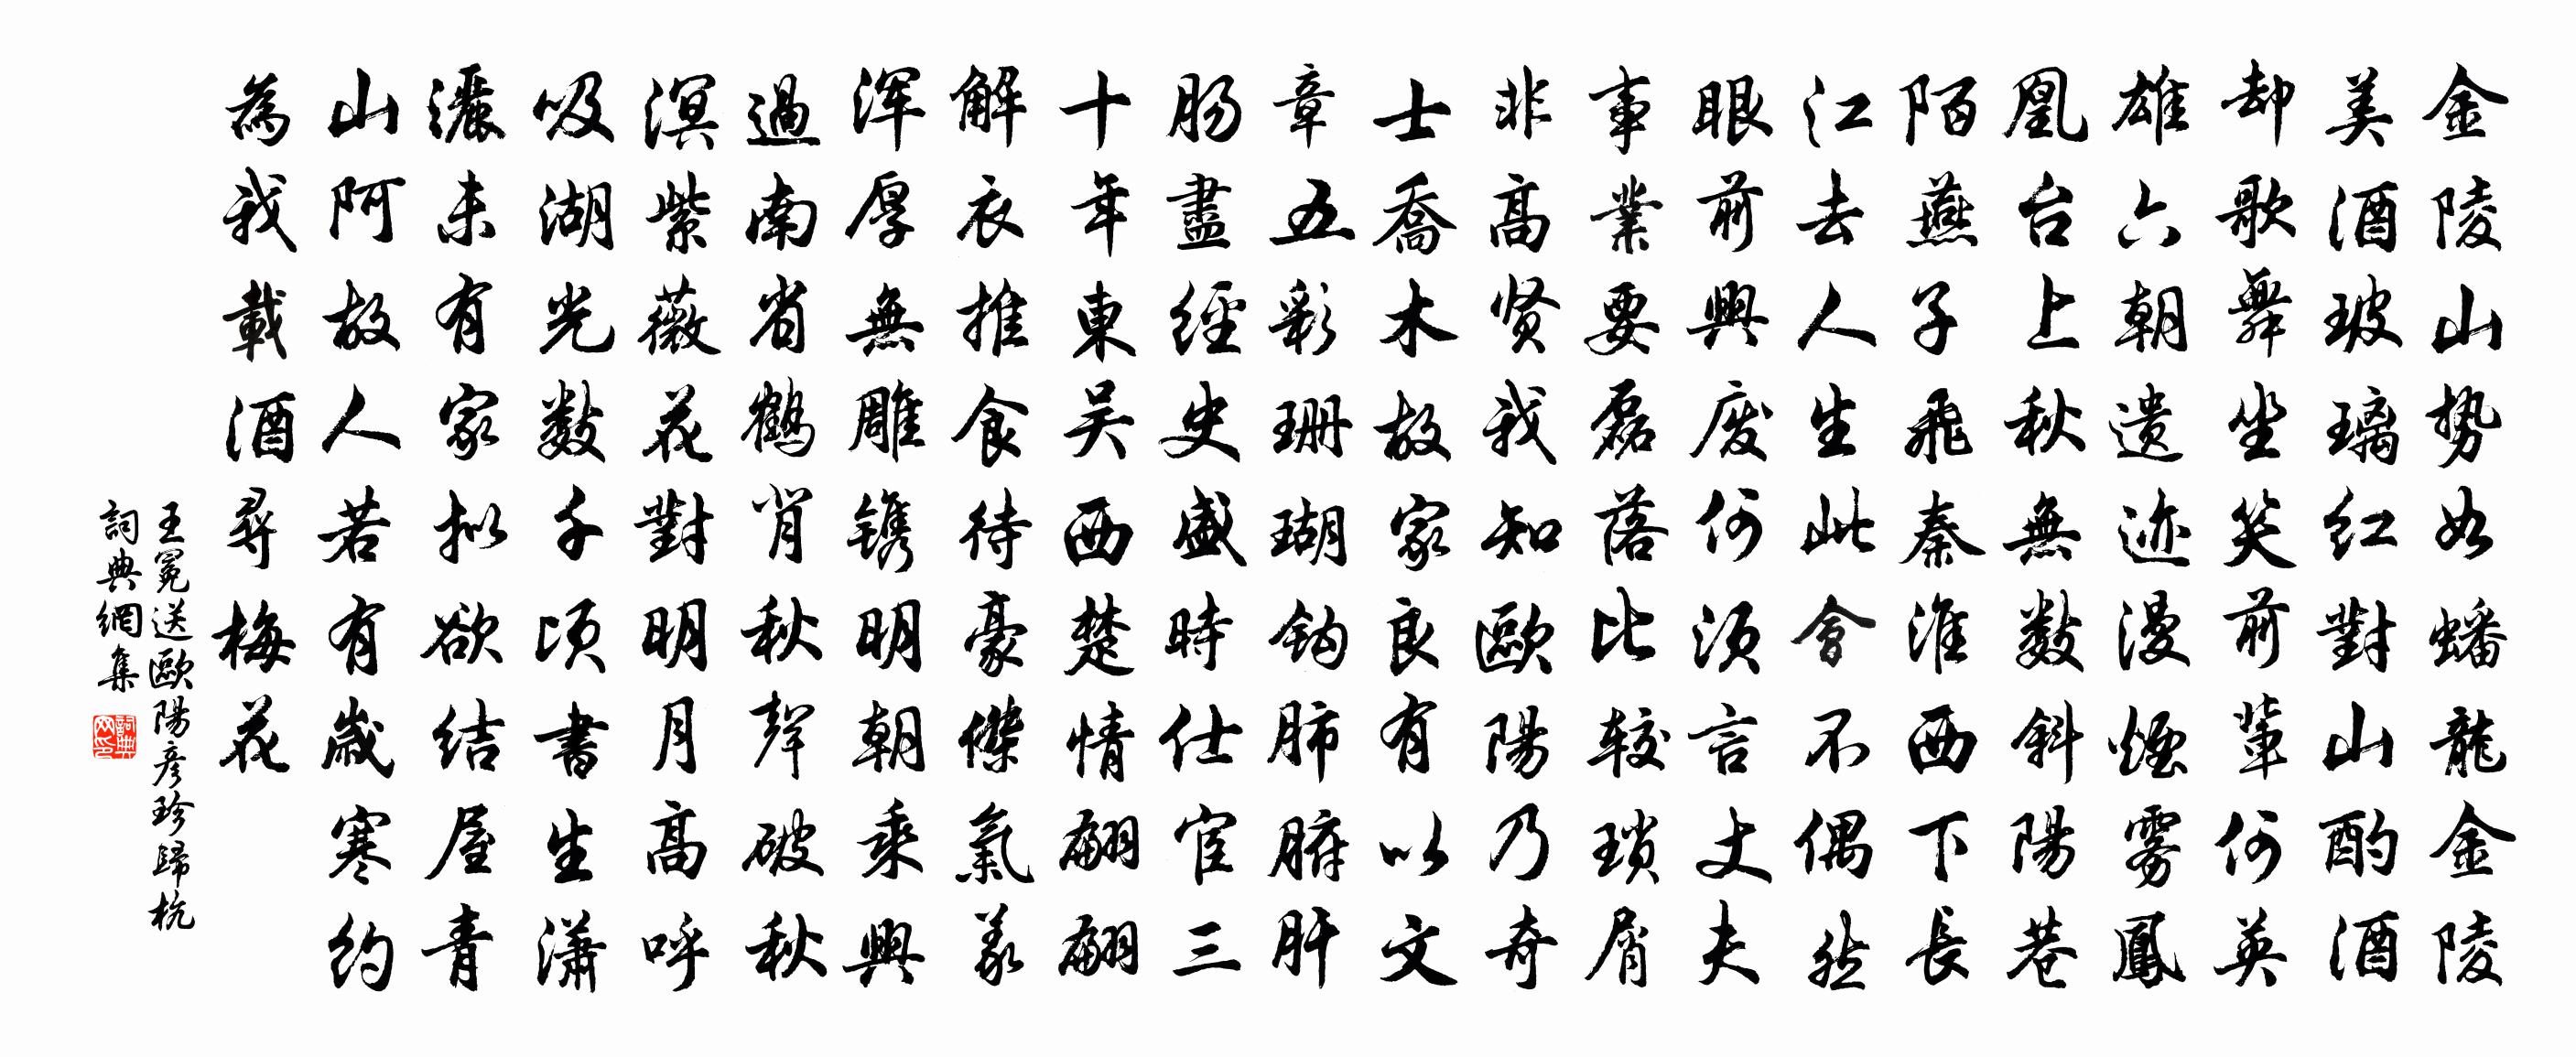 金陵山势如蟠龍金陵
美酒玻璃红對山酌酒
却歌舞坐笑前輩何英
雄六朝遗迹漫煙雾鳳
凰台上秋無数斜陽巷
陌燕子飛秦淮西下長
江去人生此會不偶然
眼前興废何须言丈夫
事業要磊落比较琐屑
非高贤我知歐陽乃奇
士喬木故家良有以文
章五彩珊瑚钩肺腑肝
肠盡經史盛時仕宦三
十年東吴西楚情翩翩
解衣推食待豪傑氣義
浑厚無雕镌明朝乘興
過南省鹤背秋聲破秋
溟紫薇花對明月高呼
吸湖光数千顷書生瀟
灑未有家拟欲结屋青
山阿故人若有歲寒约
為我載酒尋梅花
王冕送歐陽彦珍歸杭
詞典網集
詞典
网印